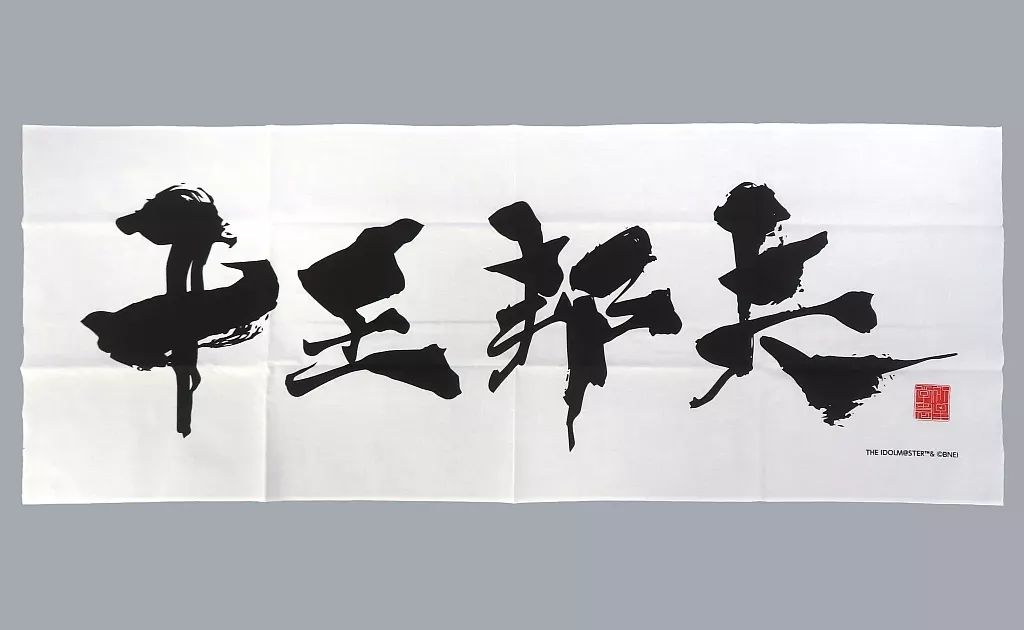 十王邦夫
THE IDOLM@STER™& ©BNEI